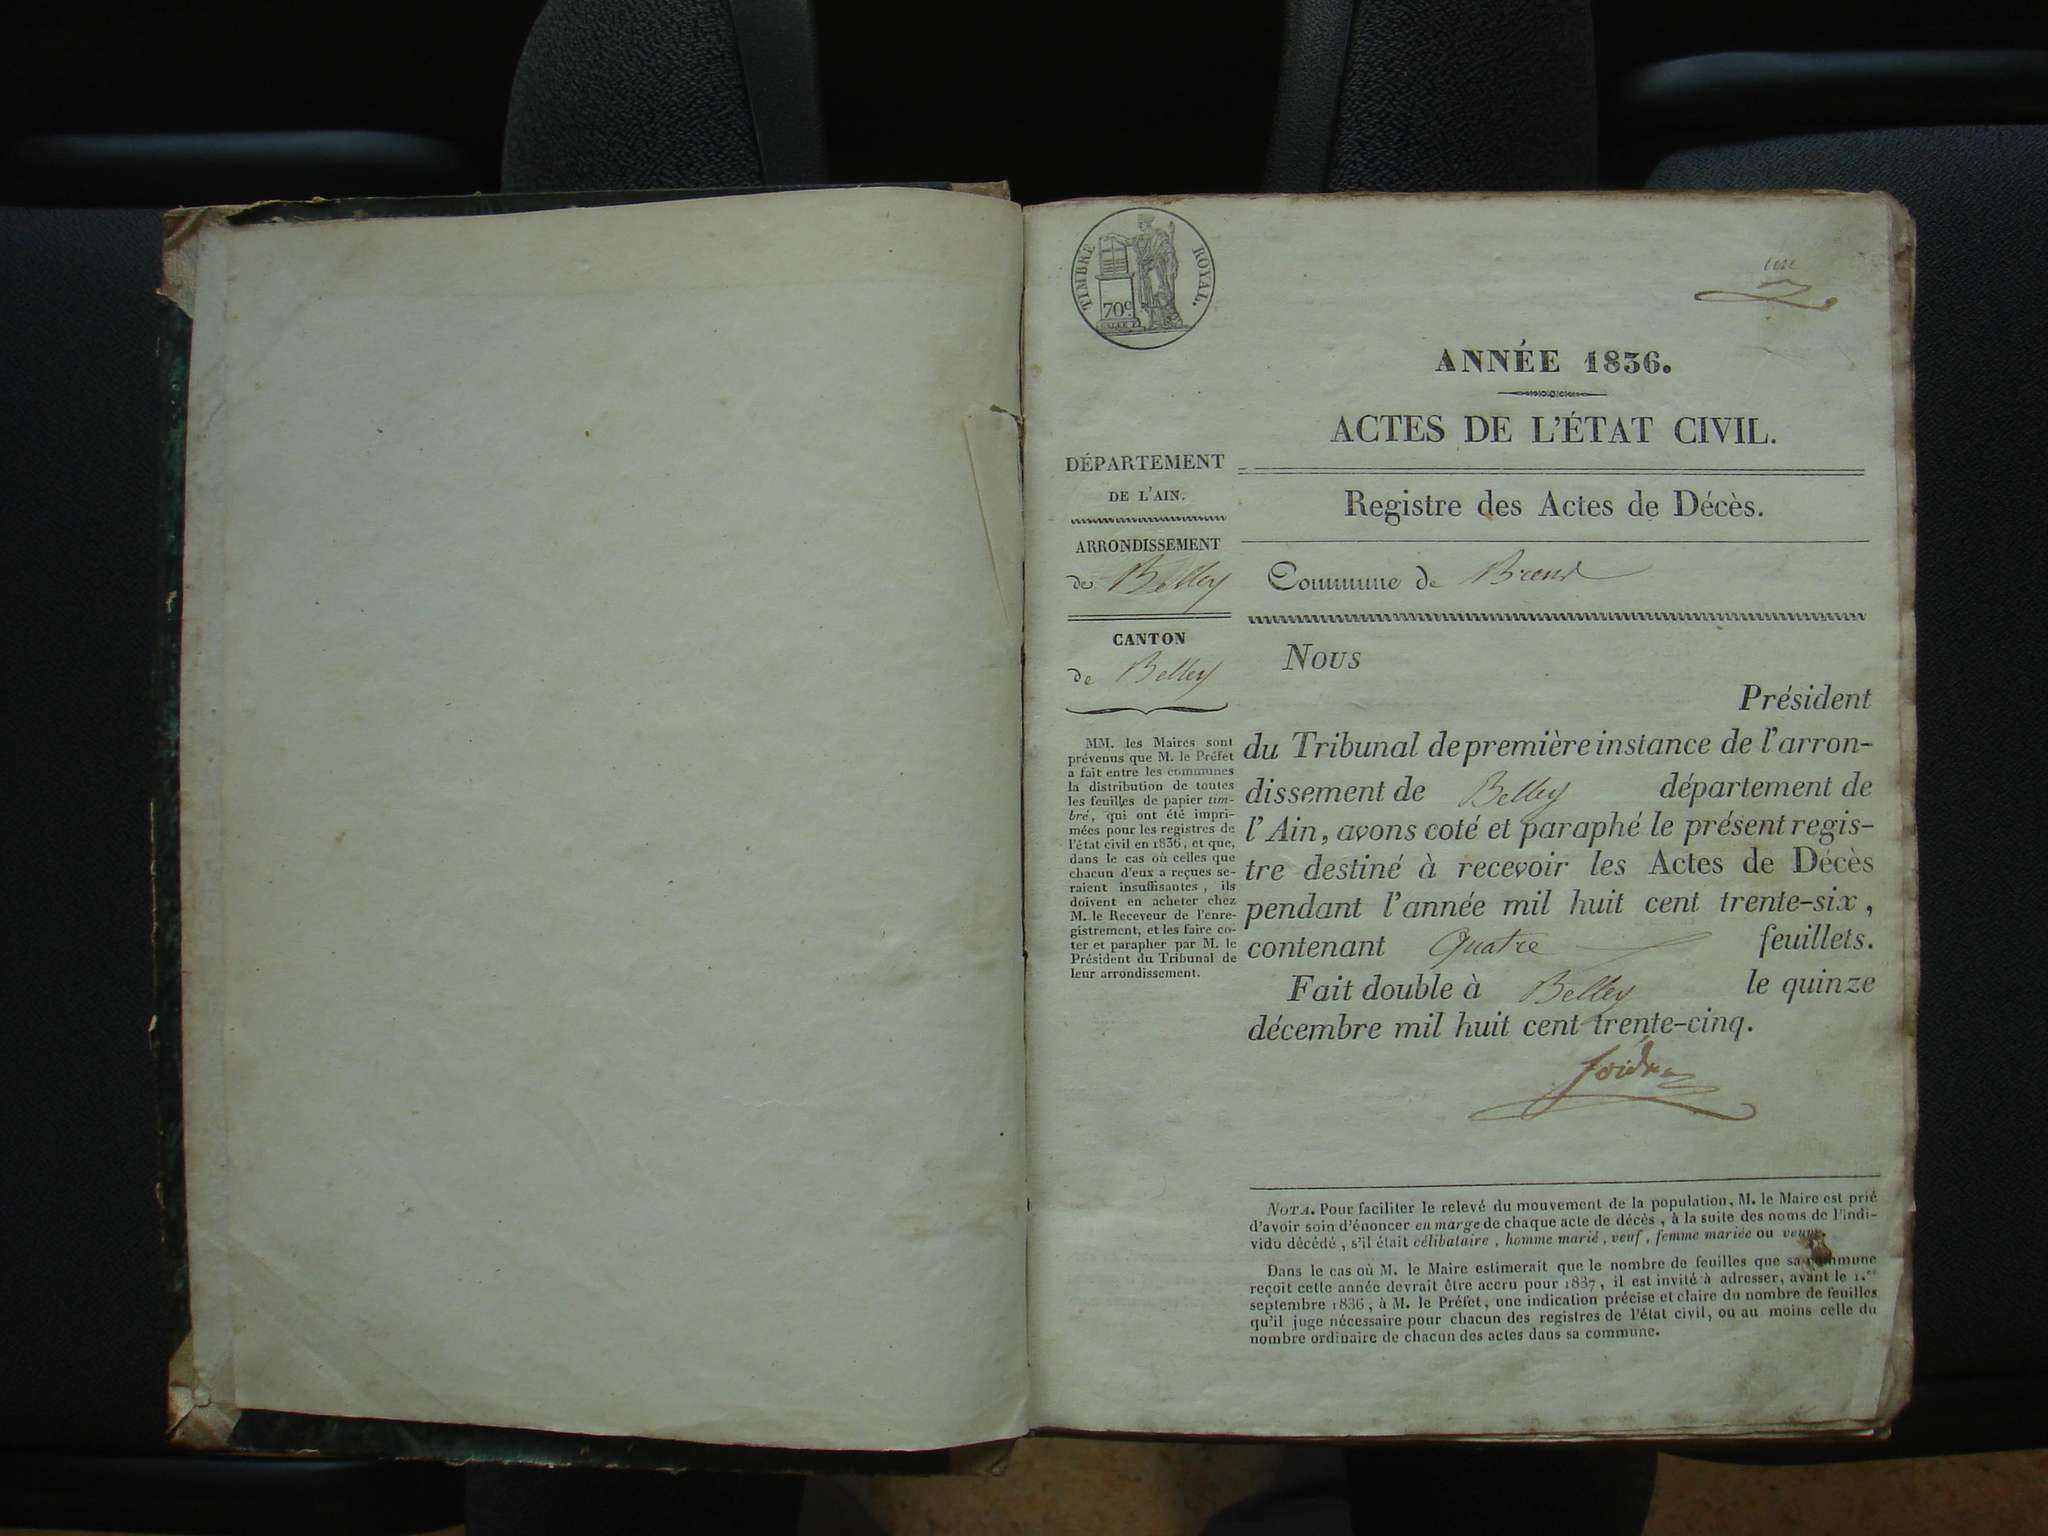 TIMBRE ROYAL.
70c
un
ANNÉE 1836.
ACTES DE L'ÉTAT CIVIL.
Registre des Actes de Décès.
Commune de Brens
DÉPARTEMENT
DE L'AIN.
ARRONDISSEMENT
de Belley
CANTON
de Belley
MM. les Maires sont
prévenus que M. le Préfet
a fait entre les communes
la distribution de toutes
les feuilles de papier tim-
bré, qui ont été impri-
mées pour les registres de
l'état civil en 1836, et que,
dans le cas où celles que
chacun d'eux a reçues se-
raient insuffisantes, ils
doivent en acheter chez
M. le Receveur de l'enre-
gistrement, et les faire co-
ter et parapher par M. le
Président du Tribunal de
leur arrondissement.
Nous
Président
du Tribunal de première instance de l'arron-
dissement de Belley département de
l'Ain, avons coté et paraphé le présent regis-
tre destiné à recevoir les Actes de Décès
pendant l'année mil huit cent trente-six,
contenant Quatre feuillets.
Fait double à Belley le quinze
décembre mil huit cent trente-cinq.
NOTA. Pour faciliter le relevé du mouvement de la population, M. le Maire est prié
d'avoir soin d'énoncer en marge de chaque acte de décès, à la suite des noms de l'indi-
vidu décédé, s'il était célibataire, homme marié, veuf, femme mariée ou veuve.
Dans le cas où M. le Maire estimerait que le nombre de feuilles que sa commune
reçoit cette année devrait être accru pour 1837, il est invité à adresser, avant le 1.er
septembre 1836, à M. le Préfet, une indication précise et claire du nombre de feuilles
qu'il juge nécessaire pour chacun des registres de l'état civil, ou au moins celle du
nombre ordinaire de chacun des actes dans sa commune.